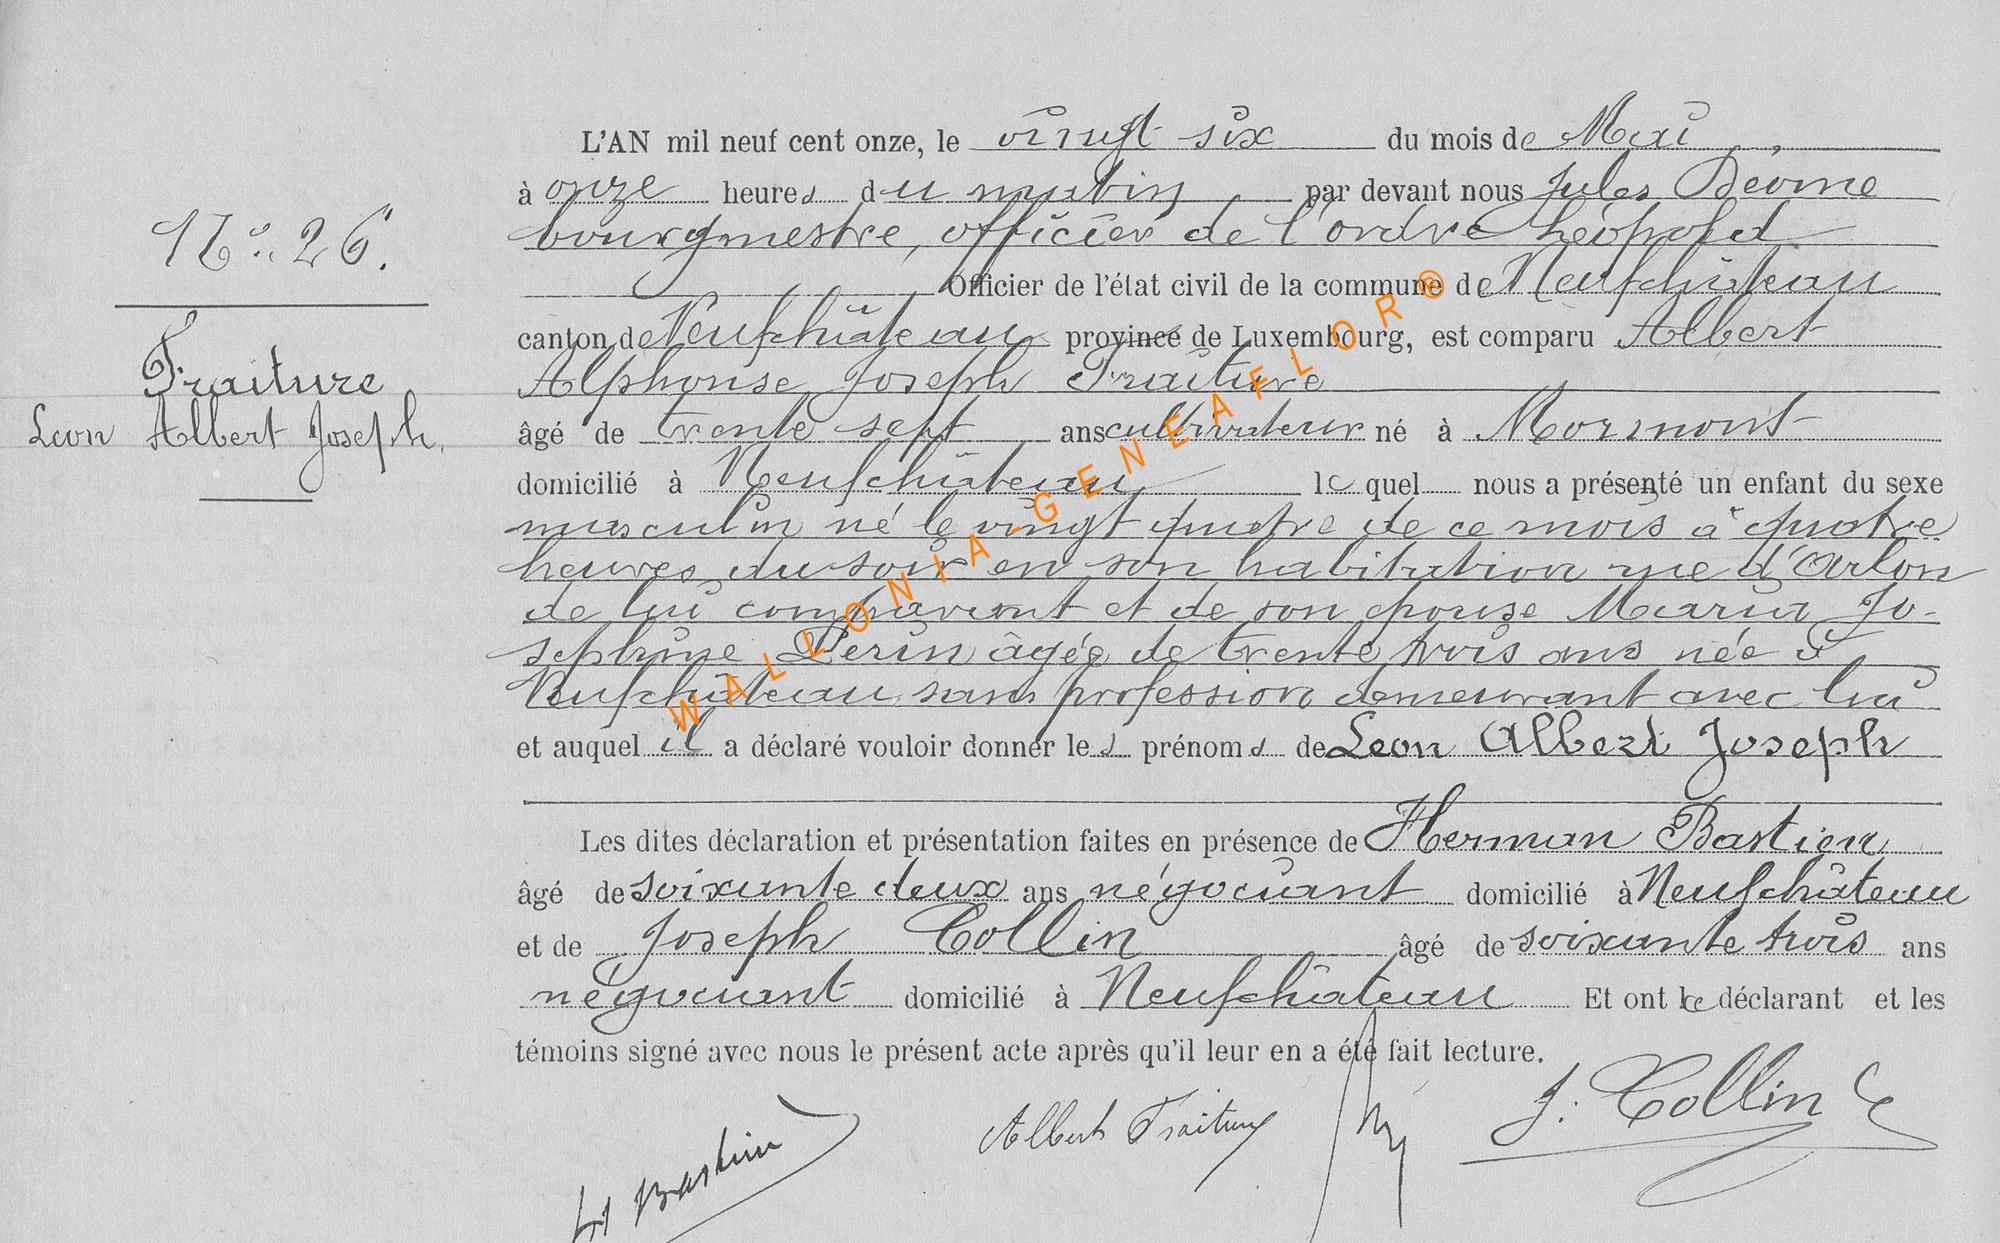 N° 26.
Fraiture
Leon Albert Joseph.
L'AN mil neuf cent onze, le vingt six du mois de Mai,
à onze heures du matin par devant nous Jules
bourgmestre, officier de l'ordre Léopold
Officier de l'état civil de la commune de Neufchâteau
canton de Neufchâteau province de Luxembourg, est comparu Albert
Alphonse Joseph Fraiture
âgé de trente sept ans cultivateur né à Mormont
domicilié à Neufchâteau lequel nous a présenté un enfant du sexe
masculin né le vingt quatre de ce mois à quatre
heures du soir en son habitation rue d'Arlon
de lui comparant et de son épouse Maria Jo-
sephine Perin âgée de trente trois ans née à
Neufchâteau sans profession demeurant avec lui
et auquel il a déclaré vouloir donner les prénoms de Leon Albert Joseph
Les dites déclaration et présentation faites en présence de Herman Bastien
âgé de soixante deux ans négociant domicilié à Neufchâteau
et de Joseph Collin âgé de soixante trois ans
négociant domicilié à Neufchâteau Et ont le déclarant et les
témoins signé avec nous le présent acte après qu'il leur en a été fait lecture.
H Bastien Albert Fraiture J. Collin
WALLONIA-GENEAFLOR®